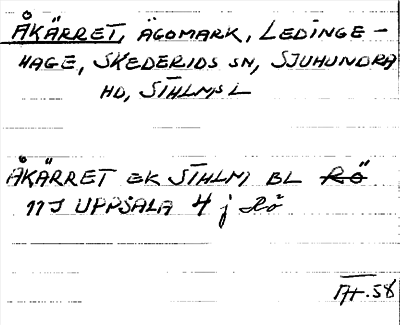 ÅKÄRRET, ÄGOMARK, LEDINGE-
HAGE, SKEDERIDS SN, SJUHUNDRA
HD, STHLMS L
ÅKÄRRET EK STHLM, BL RÖ
11J UPPSALA 4 j Rö
.58